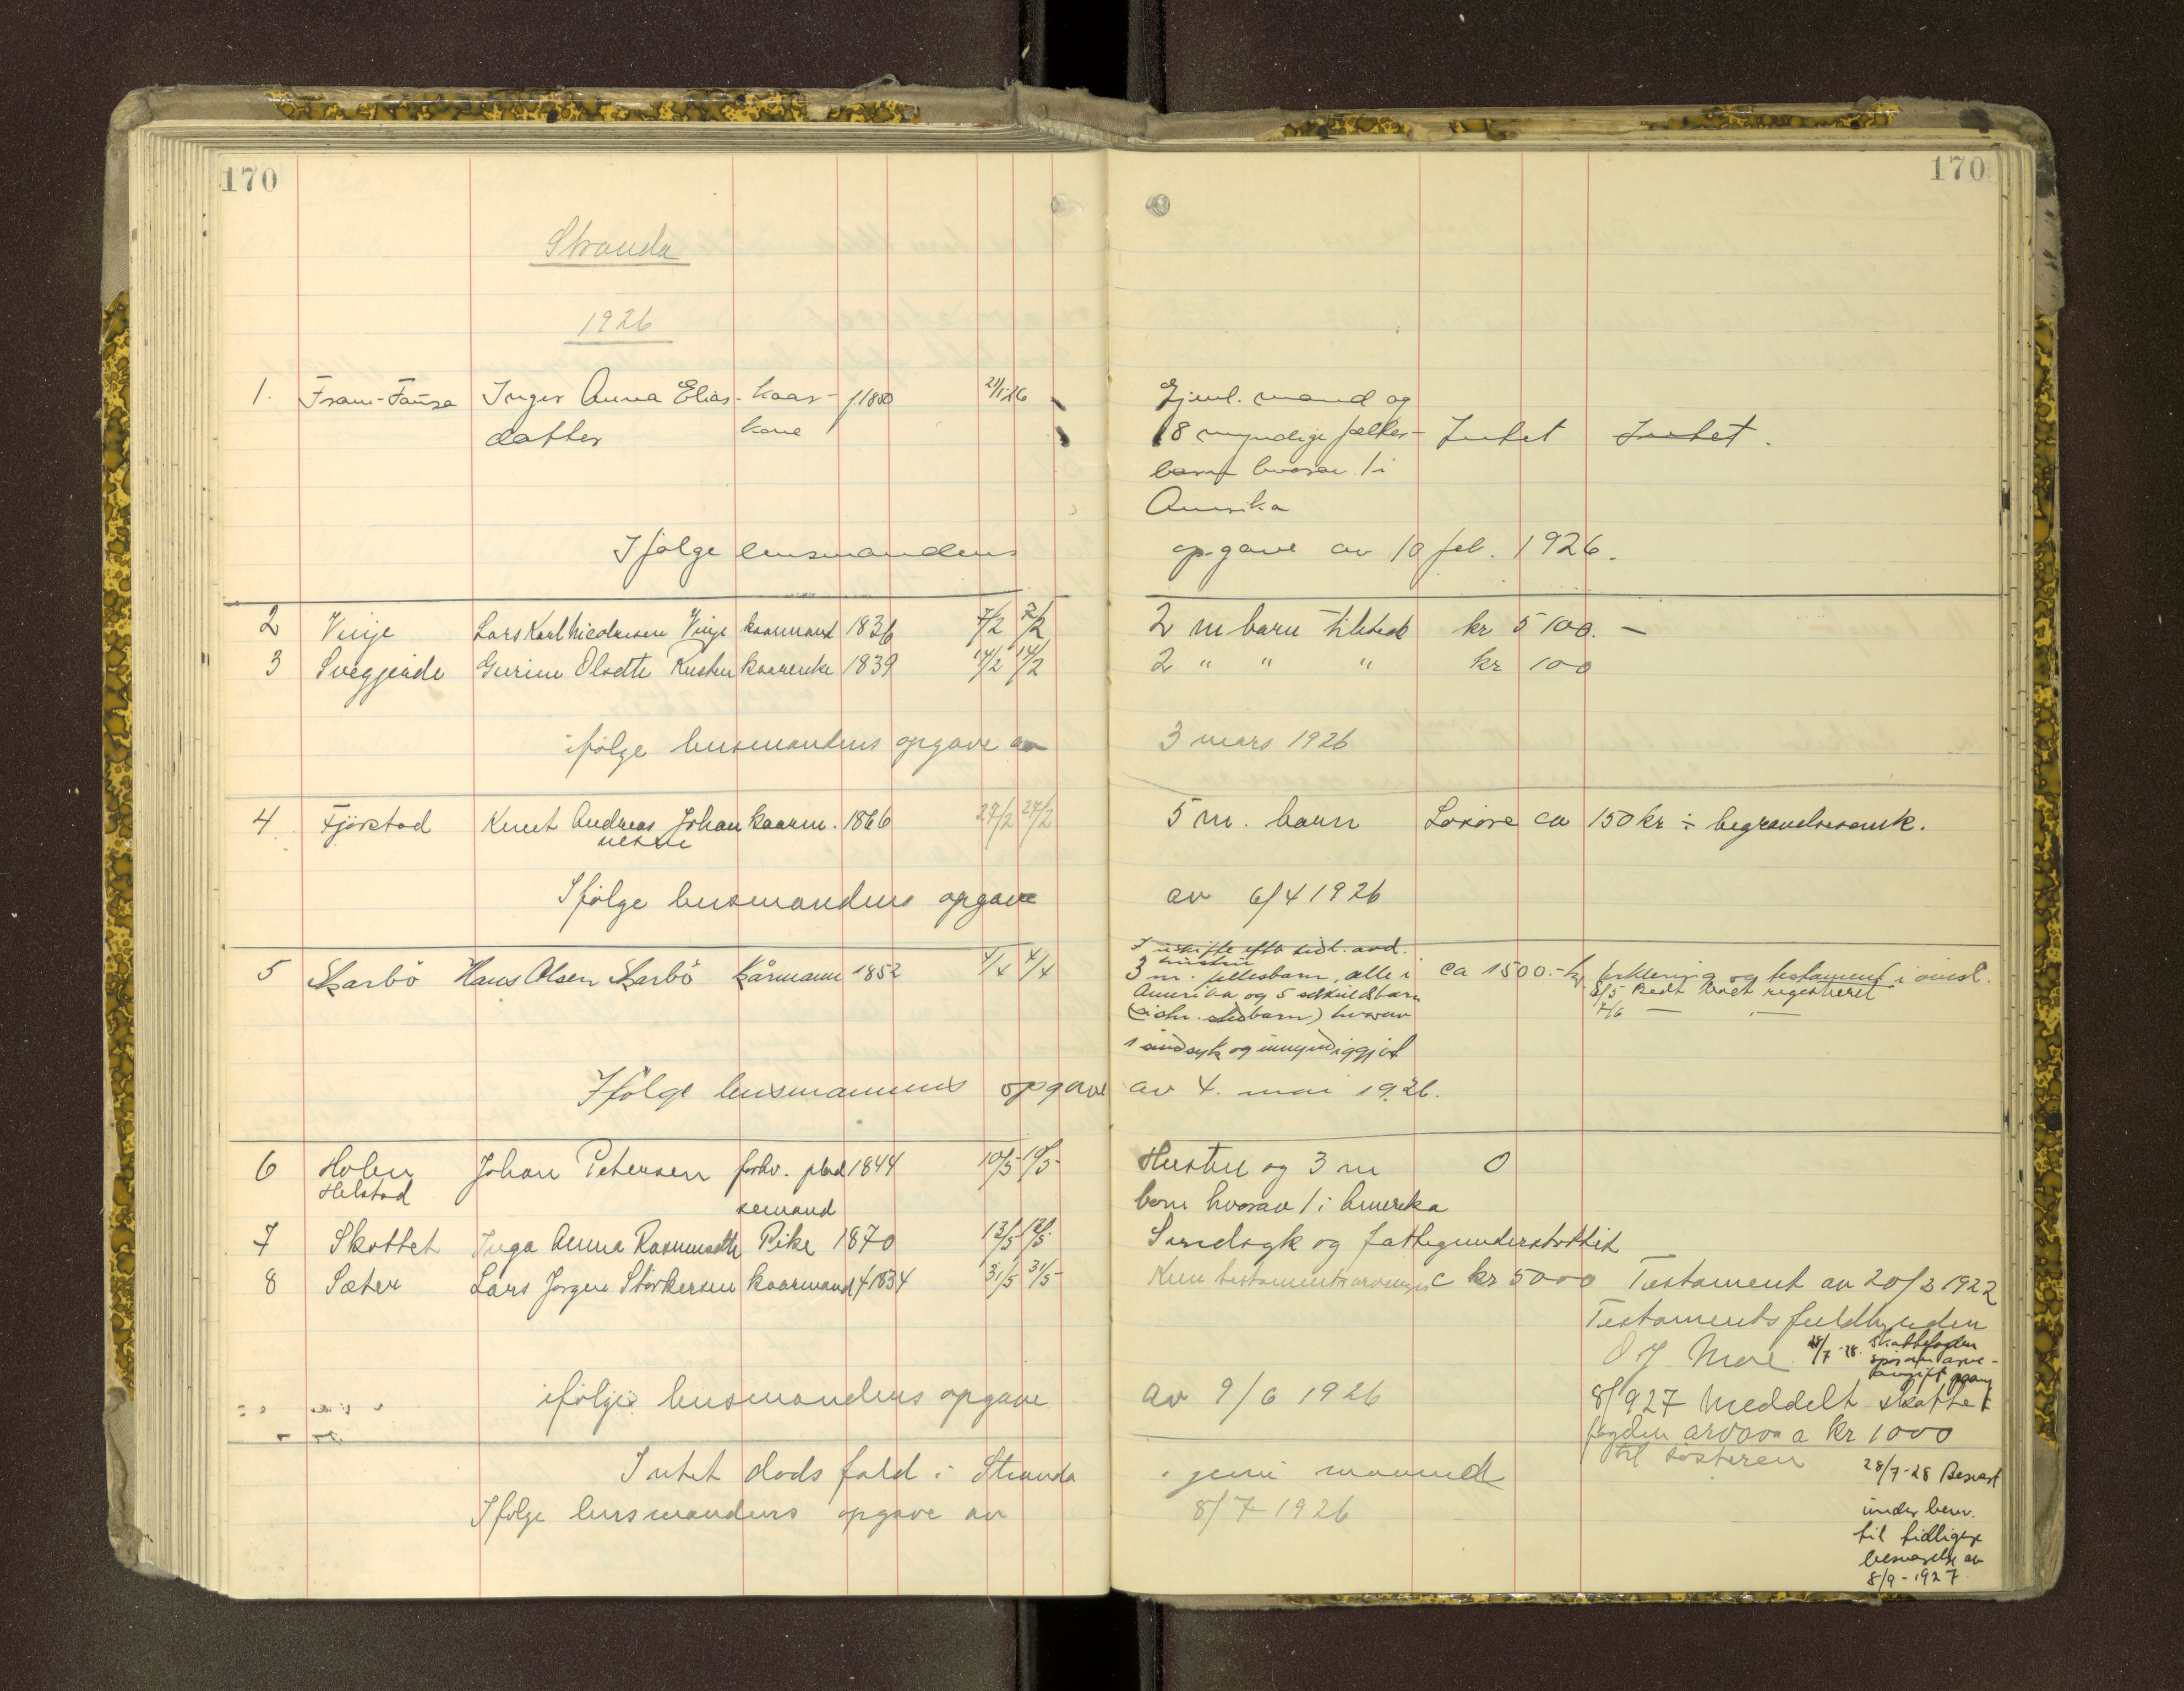 170
170
Stranda
1926
1. Fram-Fausa Inger Anna Elias- kaar- f.1850 21/1-26 Gjenl. mand og
datter kone 8 myndige fælles- Intet Intet.
barn hvorav 1 i
Amerika
Ifølge lensmandens opgave av 10 feb. 1926.
2 Vinje Lars Karl Nicolaisen Vinje kaarmand 1836 7/2 7/2 2 m barn tilstede kr 5100.—
3 Svegjerde Gurine Olsdtr Rusten kaarenke 1839 14/2 14/2 2 " " " kr 100
ifølge lensmandens opgave av 3 mars 1926
4 Fjørstad Knut Andreas Johan kaarm. 1866 27/2 27/2 5 m. barn Løsøre ca 150 kr ÷ begravelsesomk.
nesen
Ifølge lensmandens opgave av 6/4 1926
I uskifte efter tidl. avd.
hustru
5 Skarbö Hans Olsen Skarbö kårmann 1852 4/4 4/4 3 m. fellesbarn, alle i ca 1500.- kr. erklæring og testament i avisl.
Amerika og 5 særkuldsbarn 8/5 Bedt registreret
(sin. stebarn) hvorav 7/6 — —
1 sindsyk og umyndiggjort
Ifølge lensmannens opgave av 4. mai 1926.
6 Holen Johan Petersen forhv. plad 1844 10/5 10/5 Hustru og 3 m 0
Helstad semand barn hvorav 1 i Amerika
7 Skottet Inga Anna Rasmusdtr Pike 1870 12/5 12/5 Sindsyk og fattigunderstøttet
8 Sæter Lars Jørgen Störkersen kaarmand f 1834 31/5 31/5 Kun testamentsarvinger c kr 5000 Testament av 20/3 1922
Testamentsfuldbyrden
O J Moe 28/7-28. Skattefogden
spør om arve-
avgift
ifølge lensmandens opgave av 9/6 1926 8/9 27 Meddelt skatte
fogden arvavg a kr 1000
til søsteren
Intet dødsfald i Stranda i juni maaned 28/7-28 Besvart
Ifølge lensmandens opgave av 8/7 1926
under henv.
til tidligere
besvarelse av
8/9-1927